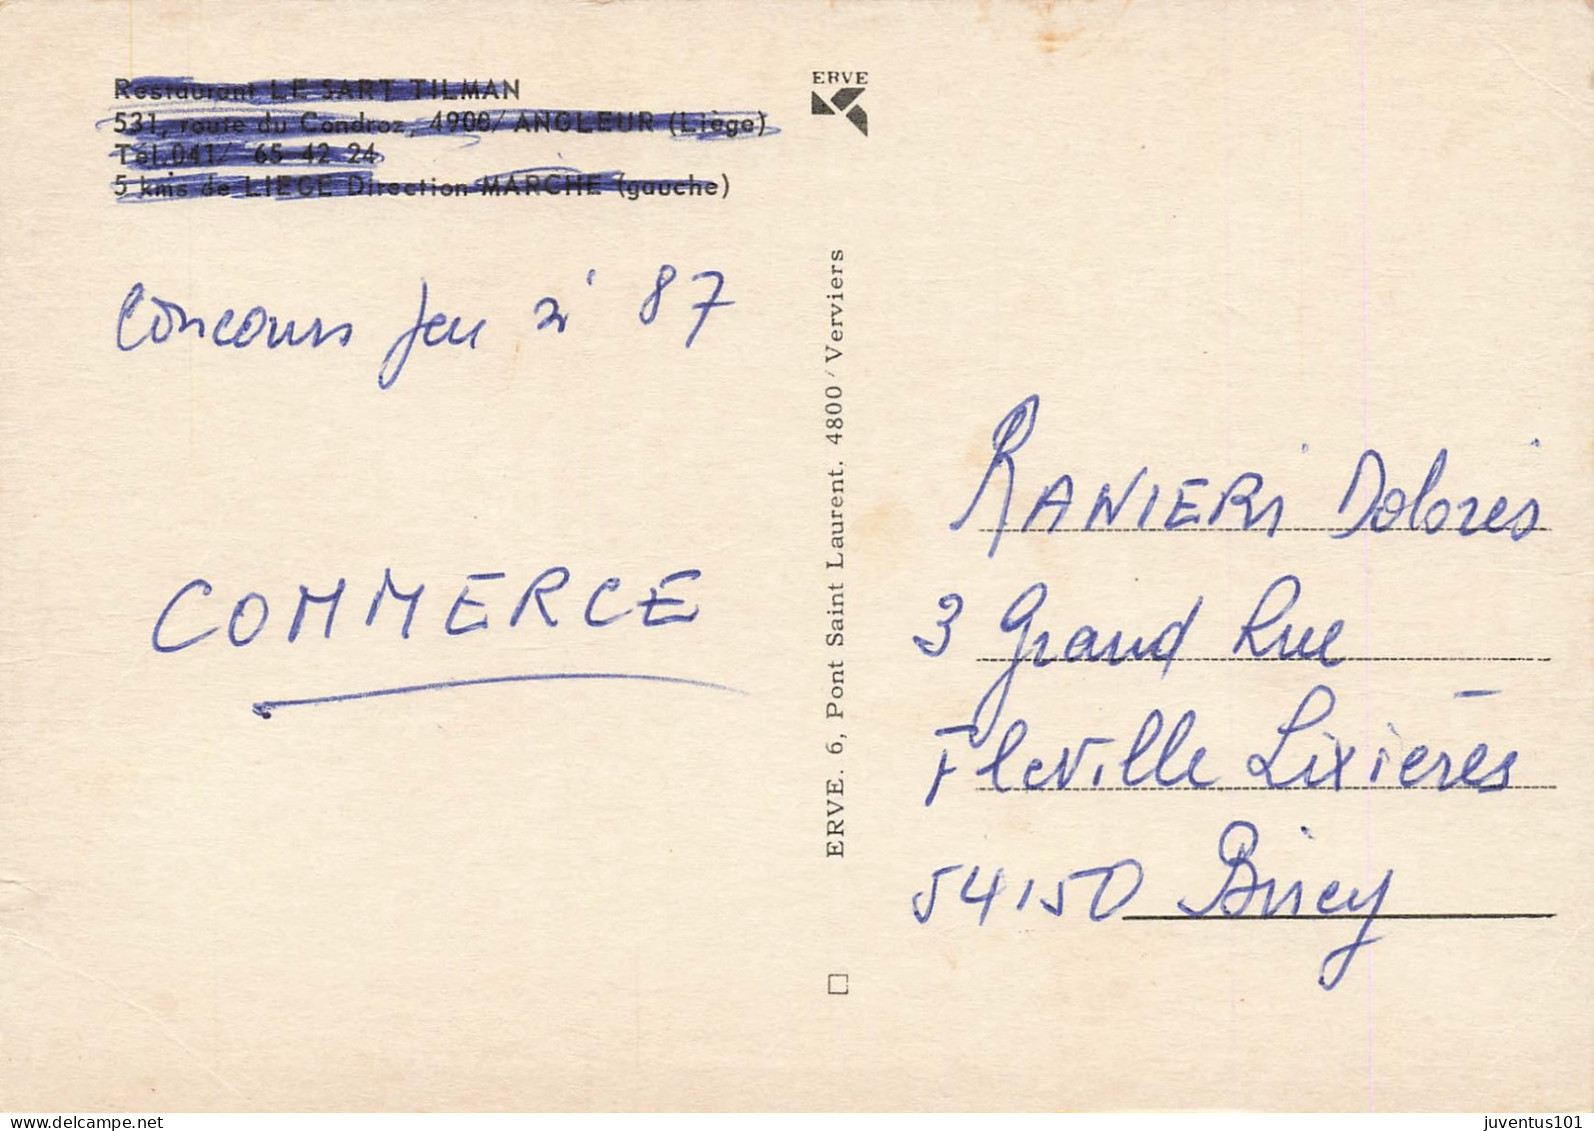 Restaurant LE SART TILMAN
531, route du Condroz, 4900/ ANGLEUR (Liège)
Tél.041/ 65 42 24
5 kms de LIEGE Direction MARCHE (gauche)
Concours jeu n° 87
COMMERCE
ERVE
ERVE. 6, Pont Saint Laurent. 4800/Verviers
RANIERI Dolores
3 Grand Rue
Fleville Lixières
54150 Briey
juventus101